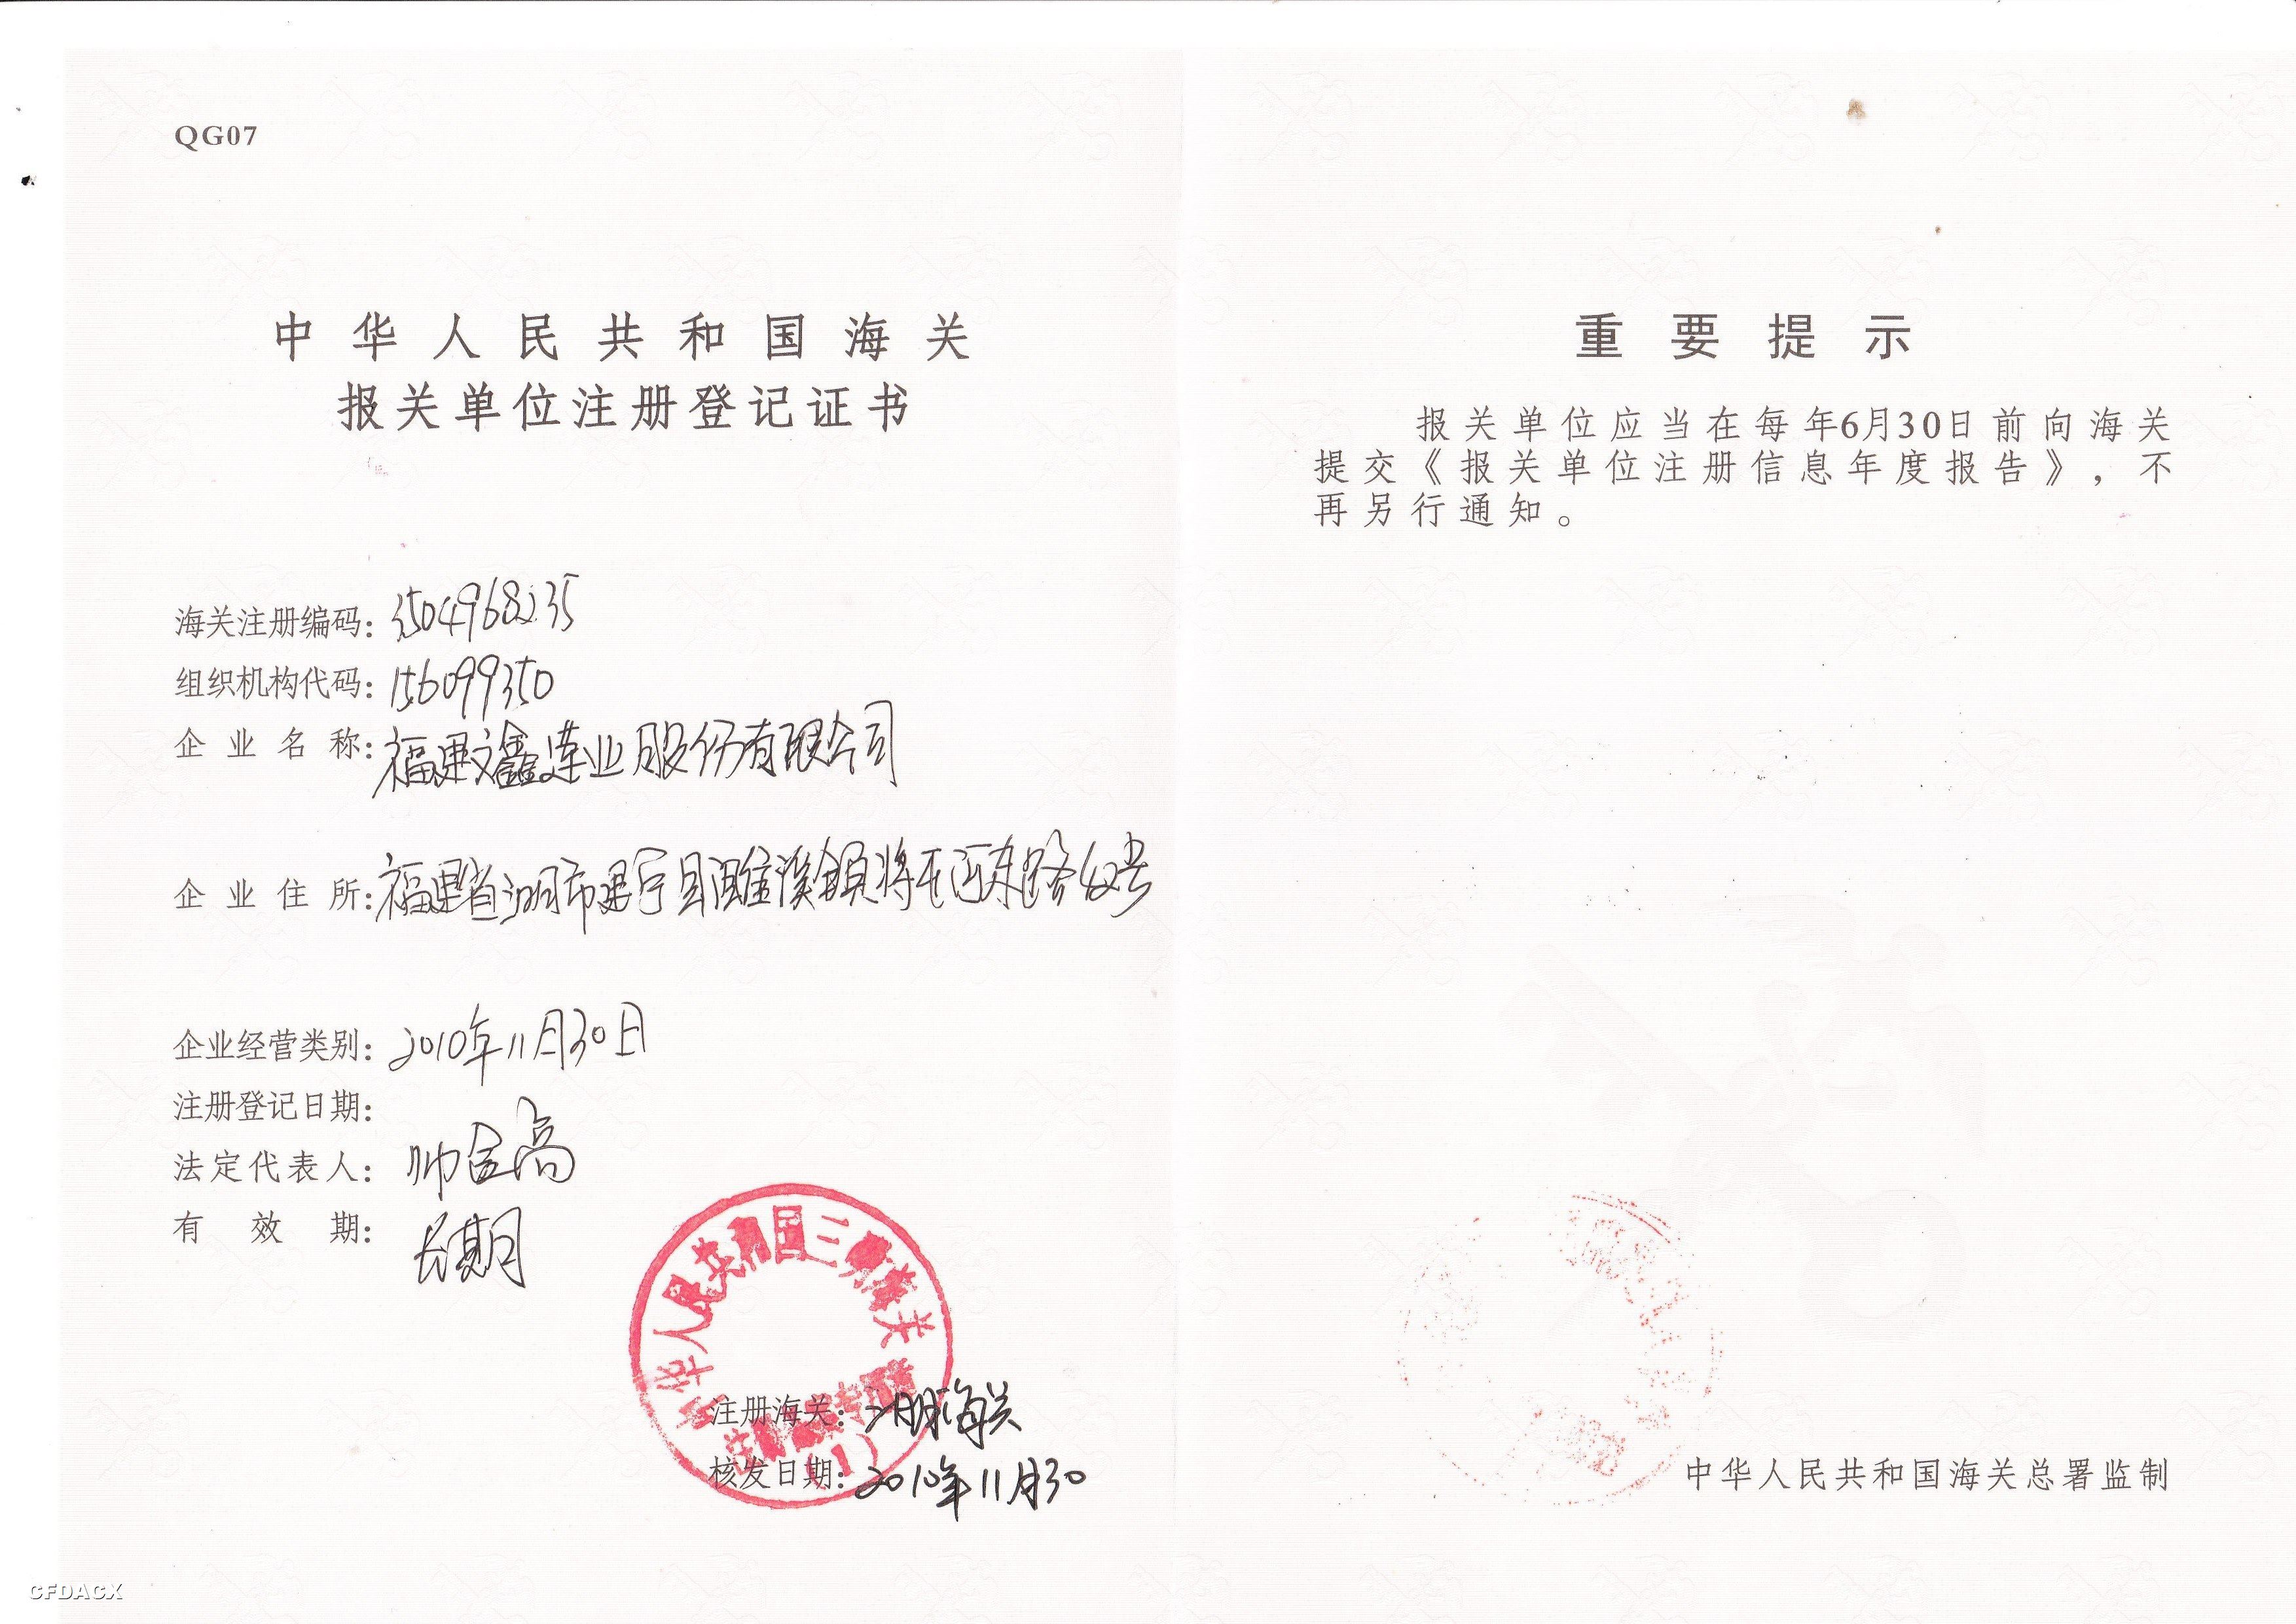 QG07
中华人民共和国海关
报关单位注册登记证书
海关注册编码：3504968235
组织机构代码：156099350
企业名称：福建文鑫莲业股份有限公司
企业住所：福建省三明市建宁县濉溪镇将屯河东路
企业经营类别：2010年11月30日
注册登记日期：
法定代表人：帅金高
有效期：长期
中华人民共和国三明海关
注册海关：三明海关
(1)
核发日期：2010年11月30
重要提示
报关单位应当在每年6月30日前向海关
提交《报关单位注册信息年度报告》，不
再另行通知。
中华人民共和国海关总署监制
CFDACX